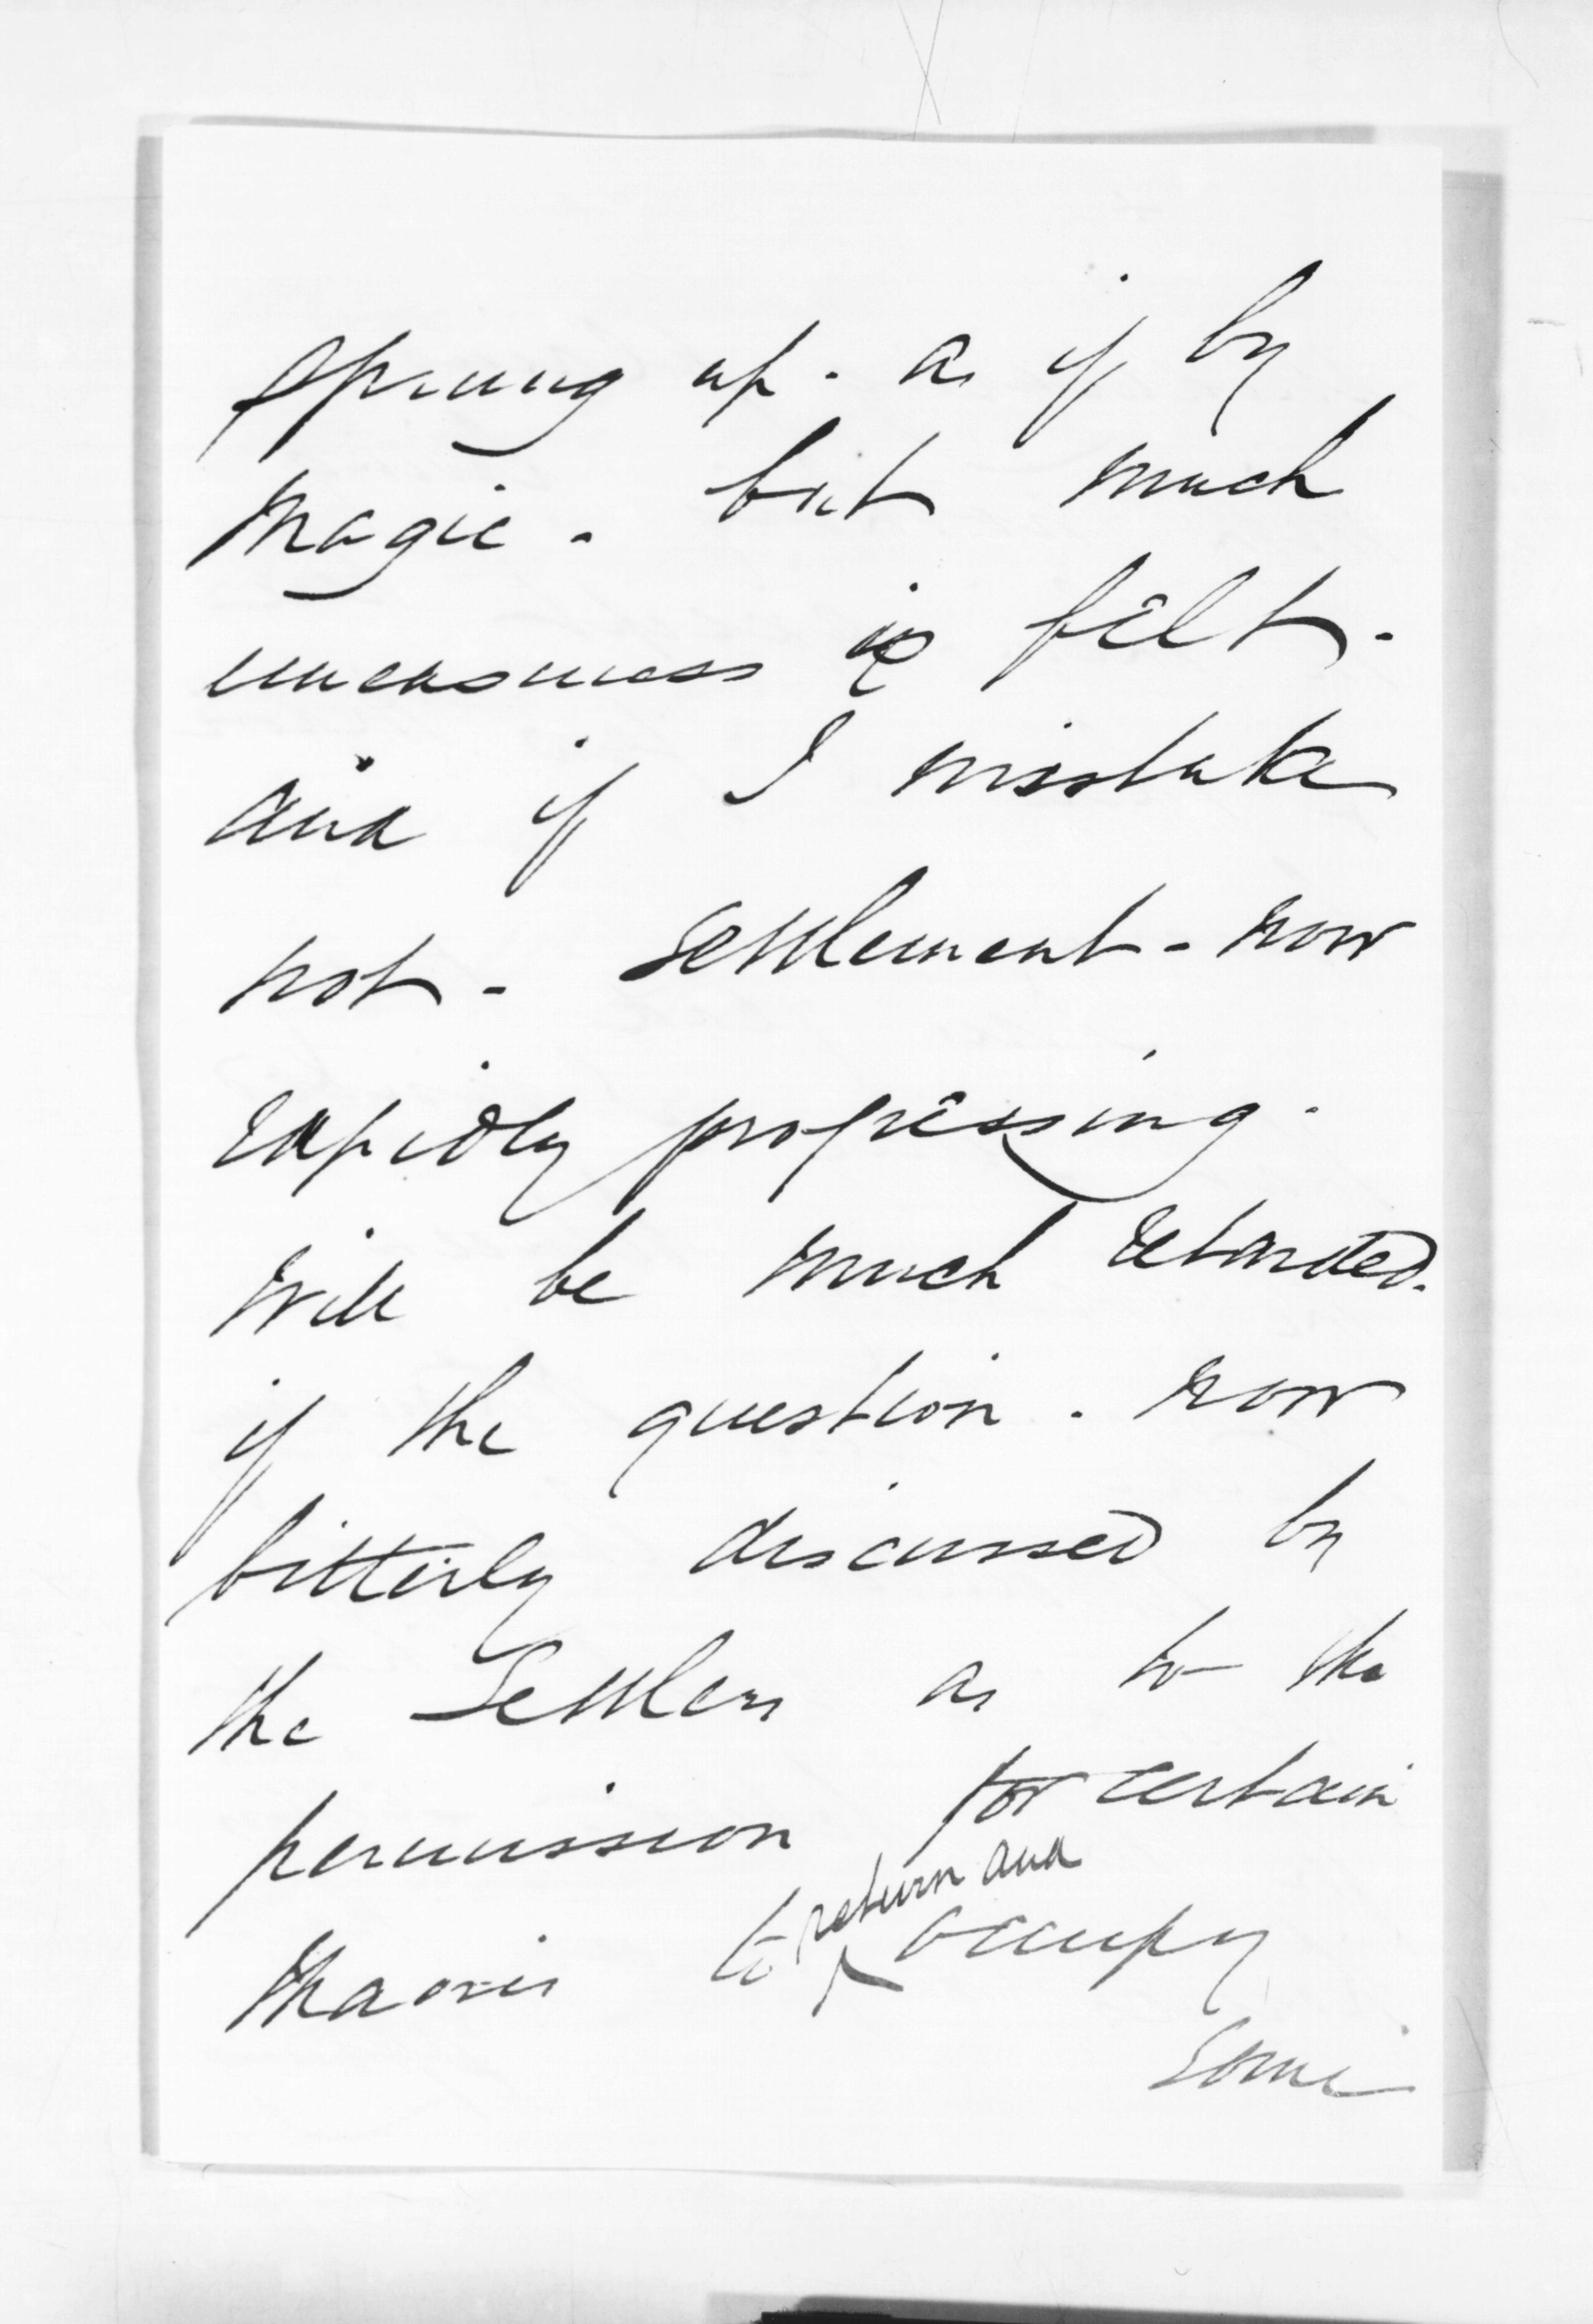 sprung up - as if by
magic - but much
uneasiness is felt -
and if I mistake
not - Settlement - now
rapidly progressing -
will be much retarded -
if the question - now
bitterly discussed by
the Settlers as to the
permission for certain
Maoris to return and occupy
some